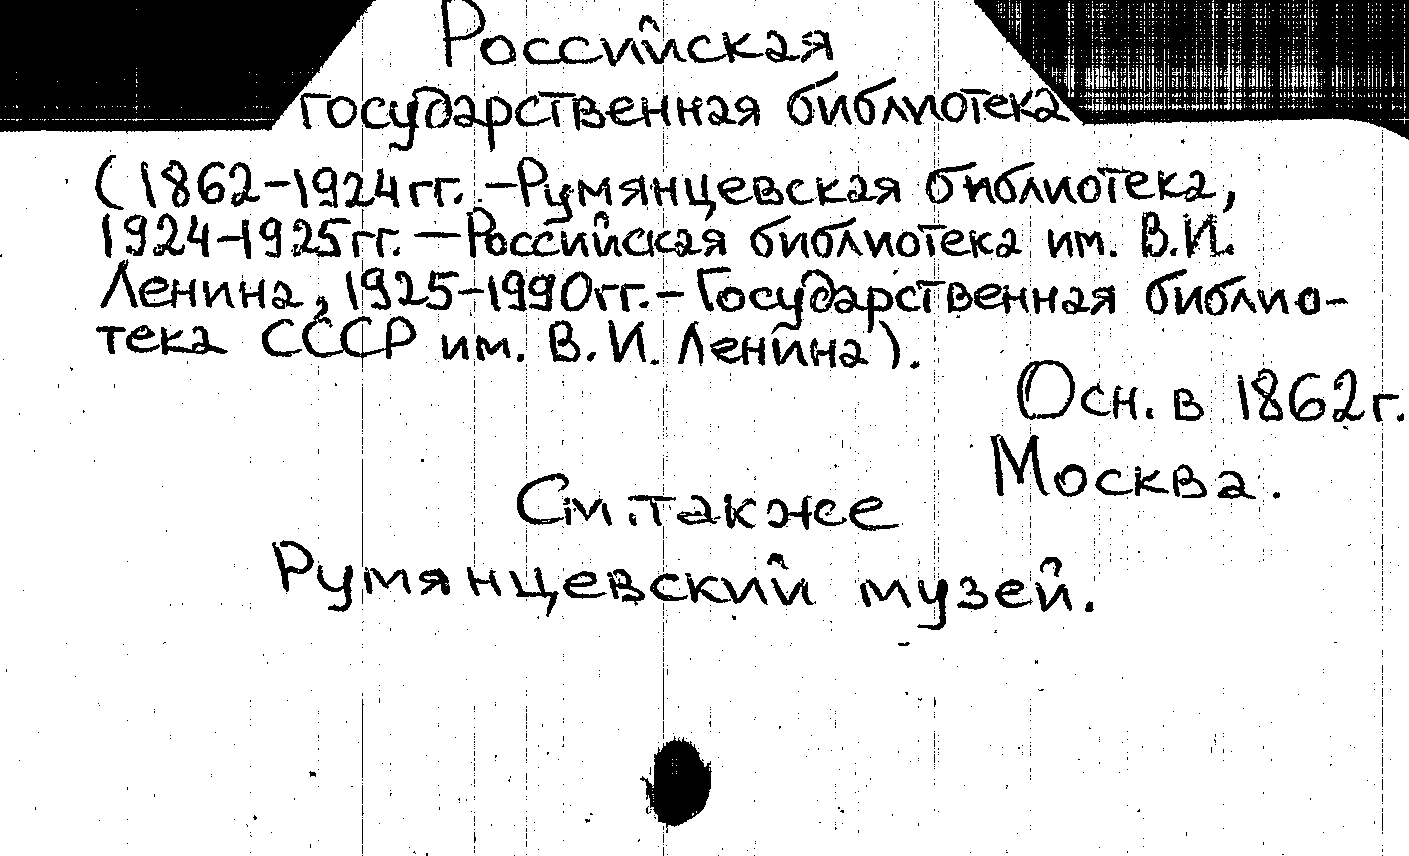 Российская
государственная библиотека
(1862-1924гг. -Румянцевская библиотека,
1924-1925гг. - Российская библиотека им. В.И.
Ленина, 1925-1990гг. - Государственная библио-
тека СССР им. В.И. Ленина).
Осн. в 1862г.
Москва.
См. также
Румянцевский музей.